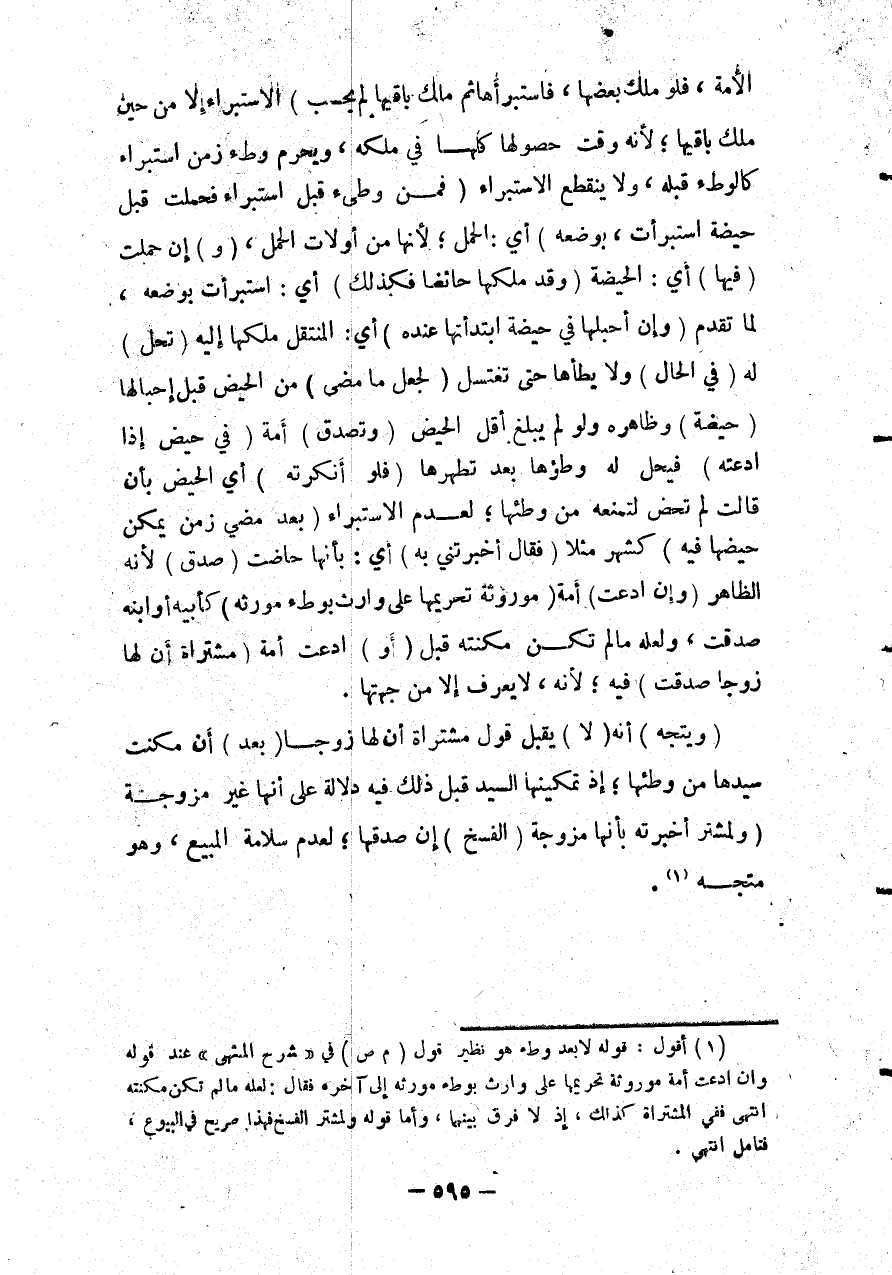 الأمة ، فلو ملك بعضها ، فاستبرأها ثم ملك باقيها لم يحسب ) الاستبراء إلا من حين
ملك باقيها ؛ لأنه وقت حصولها كلهـا في ملكه ، ويحرم وطء زمن استبراء
كالوطء قبله ، ولا ينقطع الاستبراء ( فمـن وطىء قبل استبراء فحملت قبل
حيضة استبرأت ، بوضعه ) أي : الحمل ؛ لأنها من أولات الحمل ، ( و ) إن حملت
( فيها ) أي : الحيضة ( وقد ملكها حائضا فكذلك ) أي : استبرأت بوضعه ،
لما تقدم ( وإن أحبلها في حيضة ابتدأتها عنده ) أي : المنتقل ملكها إليه ( تحل )
له ( في الحال ) ولا يطأها حتى تغتسل ( لجعل ما مضى ) من الحيض قبل إحبالها
( حيضة ) وظاهره ولو لم يبلغ أقل الحيض ( وتصدق ) أمة ( في حيض إذا
ادعته ) فيحل له وطؤها بعد تطهرها ( فلو أنكرته ) أي الحيض بأن
قالت لم تحض لتمنعه من وطئها ؛ لعـدم الاستبراء ( بعد مضي زمن يمكن
حيضها فيه ) كشهر مثلا ( فقال أخبرتني به ) أي : بأنها حاضت ( صدق ) لأنه
الظاهر ( وإن ادعت ) أمة ( موروثة تحريمها على وارث بوطء مورثه ) كأبيه أو ابنه
صدقت ، ولعله مالم تكـن مكنته قبل ( أو ) ادعت أمة ( مشتراة أن لها
زوجا صدقت ) فيه ؛ لأنه ، لايعرف إلا من جهتها .
( ويتجه ) أنه ( لا ) يقبل قول مشتراة أن لها زوجـا ( بعد ) أن مكنت
سيدها من وطئها ؛ إذ تمكينها السيد قبل ذلك فيه دلالة على أنها غير مزوجـة
( ولمشتر أخبرته بأنها مزوجة ( الفسخ ) إن صدقها ؛ لعدم سلامة المبيع ، وهو
متجـه (١) .
(١) أقول : قوله لابعد وطء هو نظير قول ( م ص ) في « شرح المنتهى » عند قوله
وان ادعت أمة موروثة تحريمها على وارث بوطء مورثه إلى آخره فقال : لعله مالم تكن مكنته
انتهى ففي المشتراة كذلك ، إذ لا فرق بينها ، وأما قوله ولمشتر الفسخ فهذا صريح في البيوع ،
فتامل انتهي .
— ٥٩٥ —